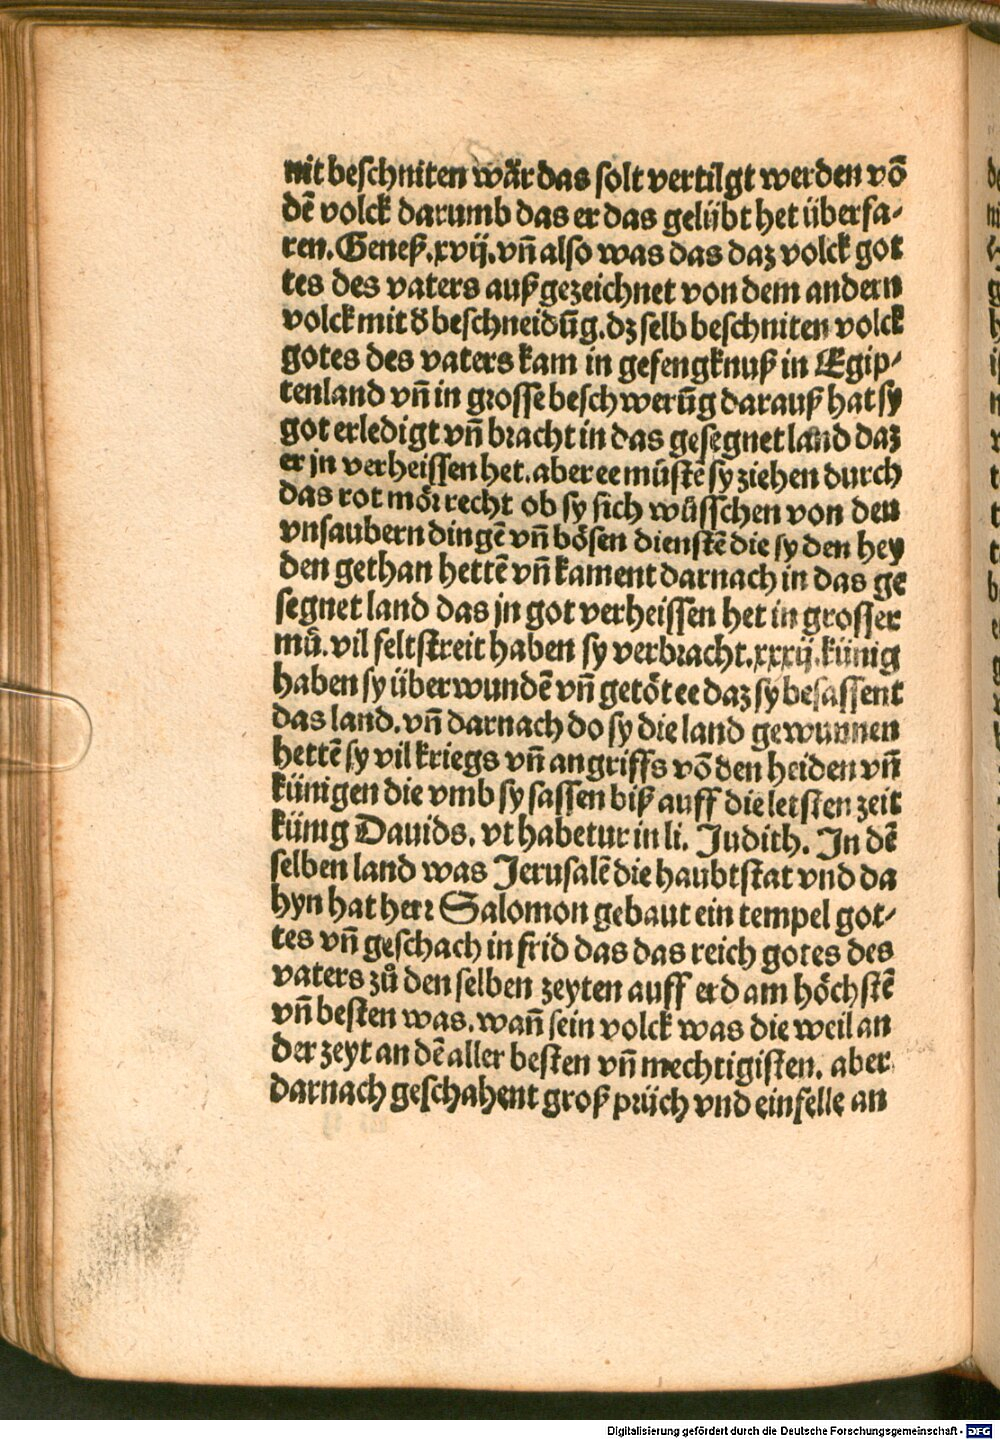 nit beschniten wår das solt vertilgt werden võ
dẽ volck darumb das er das gelübt het überfa⸗
ren. Geneß. xvij. vñ also was das daz volck got
tes des vaters außgezeichnet von dem andern
volck mit đ beschneidũg. dz selb beschniten volck
gotes des vaters kam in gefengknuß in Egip⸗
tenland vñ in grosse beschwerũg darauß hat sy
got erledigt vñ bracht in das gesegnet land daz
er jn verheissen het. aber ee můstẽ sy ziehen durch
das rot mör recht ob sy sich wůsschen von den
vnsaubern dingẽ vñ bösen dienstẽ die sy den hey
den gethan hettẽ vñ kament darnach in das ge
segnet land das jn got verheissen het in grosser
mů. vil feltstreit haben sy verbracht. xxxij. künig
haben sy überwundẽ vñ getöt ee daz sy besassent
das land. vñ darnach do sy die land gewunnen
hettẽ sy vil kriegs vñ angriffs võ den heiden vñ
künigen die vmb sy sassen biß auff die letsten zeit
künig Dauids. vt habetur in li. Judith. In dẽ
selben land was Jerusalẽ die haubtstat vnd da
hyn hat herr Salomon gebaut ein tempel got⸗
tes vñ geschach in frid das das reich gotes des
vaters zů den selben zeyten auff erd am höchstẽ
vñ besten was. wañ sein volck was die weil an
der zeyt an dẽ aller besten vñ mechtigisten. aber
darnach geschahent groß prüch vnd einfelle an
Digitalisierung gefördert durch die Deutsche Forschungsgemeinschaft - DFG